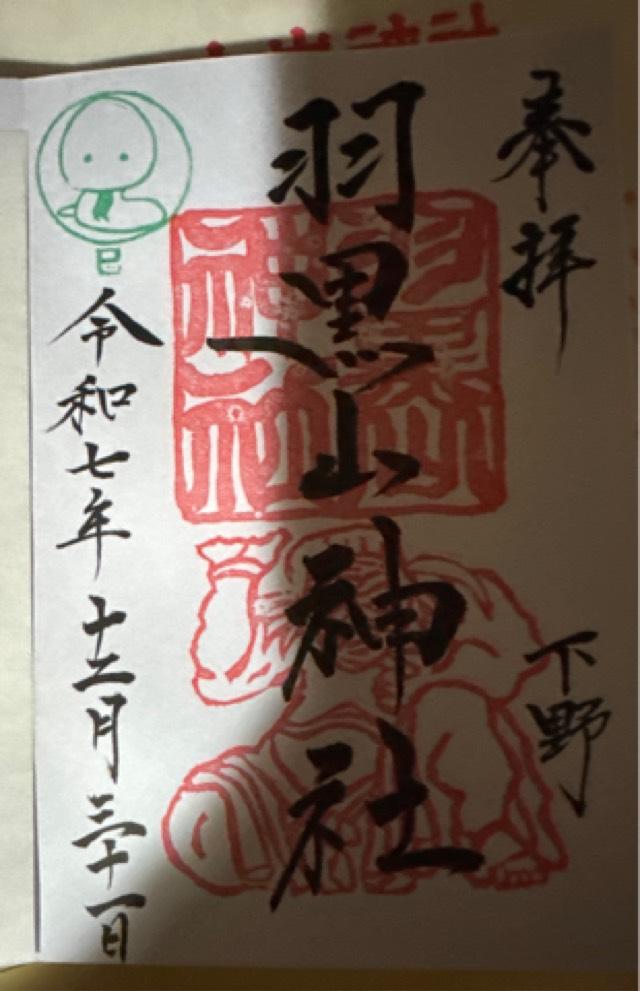 奉拝
下野
羽黒山神社
令和七年十二月三十一日
巳